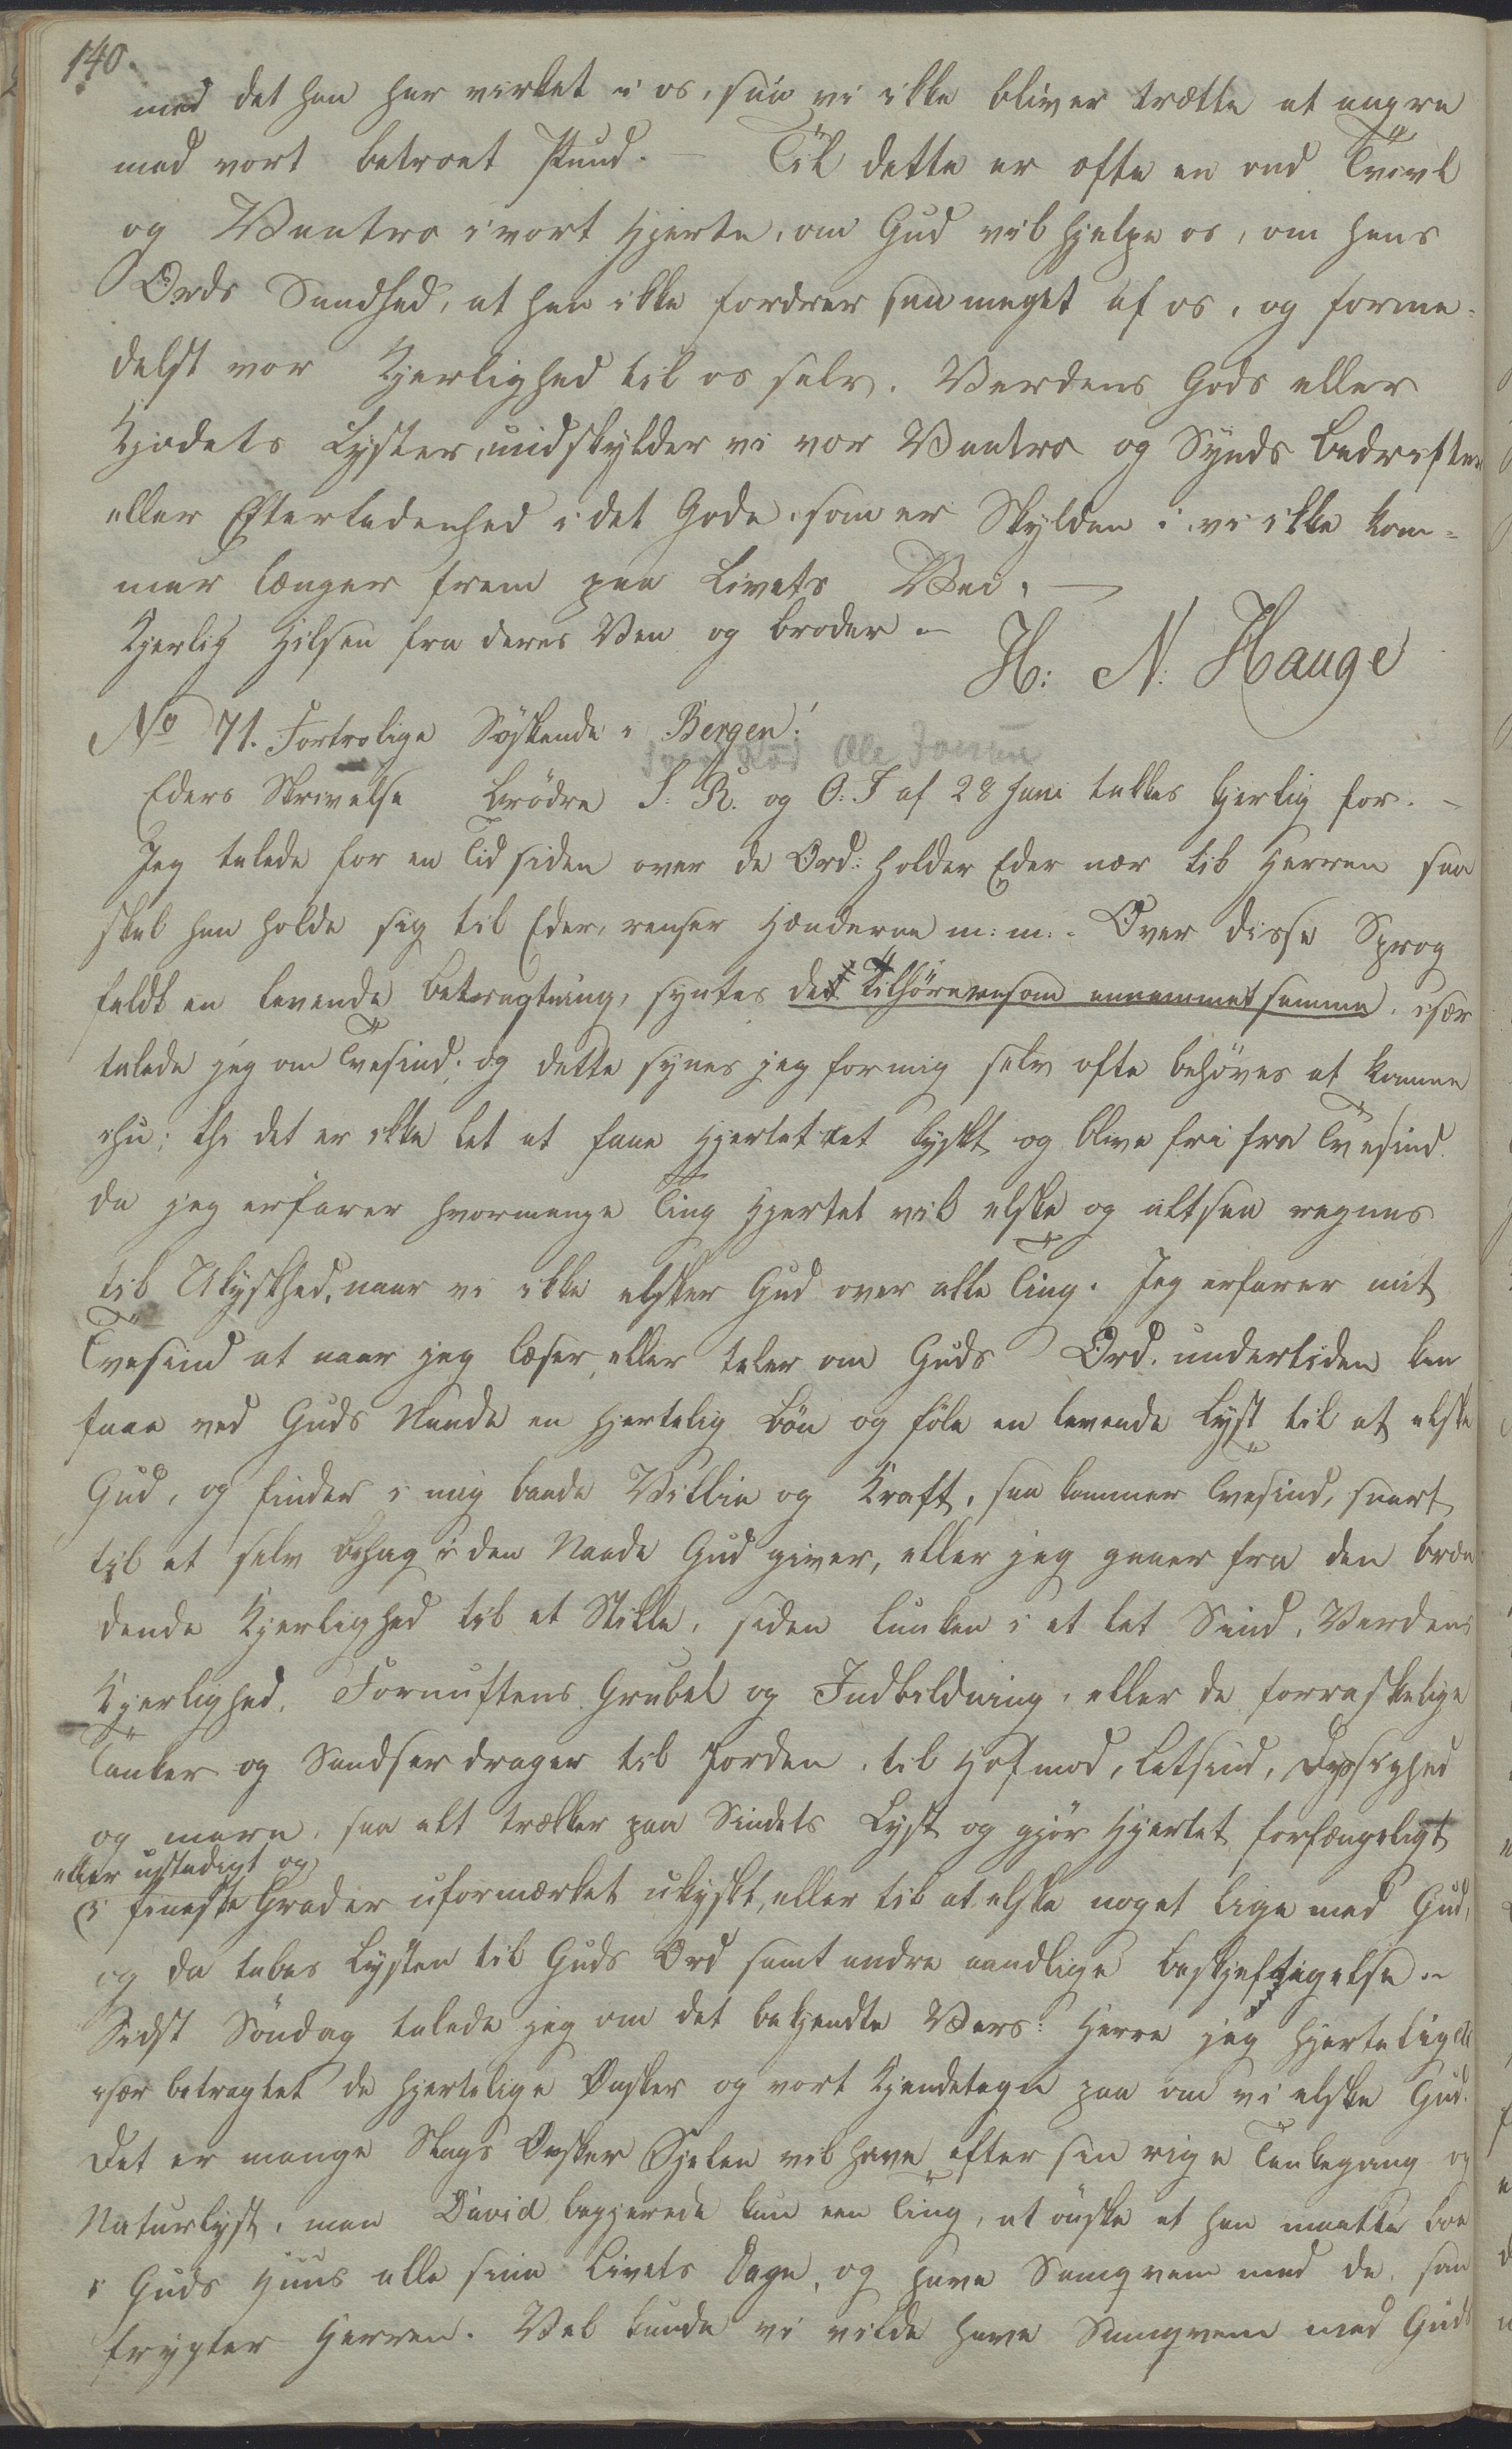 140.
med det han har virket i os, saa vi ikke bliver trætte at aagre
med vort betroet Pund. – Til dette er ofte en ond Tvivl
og Vantro i vort Hjerte, om Gud vil hjelpe os, om hans
Ords Sandhed, at han ikke fordrer saa meget af os, og forme-
delst vor Kjerlighed til os selv. Verdens Gods eller
Kjødets Lyster, undskylder vi vor Vantro og Synds Bedrifter
eller Efterladenhed i det Gode, som er Skylden i, vi ikke kom-
mer længer frem paa Livets Vei. –
Kjerlig Hilsen fra deres Ven og Broder –
H: N: Hauge
No 71. Fortrolige Søskende i Bergen!
Ole Jonsen
Eders Skrivelse Brødre S: R. og O: J af 28 Juni takkes kjerlig for. –
Jeg talede for en Tid siden over de Ord: holder Eder nær til Herren saa
skal han holde sig til Eder, renser Hænderne m: m: – Over disse Sprog
faldt en levende Betragtning, syntes det Tilhørerne som annammet samme. især
talede jeg om Tvesind; og dette synes jeg for mig selv ofte behøves at komme
ihu; thi det er ikke let at faae Hjertet ret kyskt og blive fri fra Tvesind.
da jeg erfarer hvormange Ting Hjertet vil elske og altsaa regnes
til Ukyskhed, naar vi ikke elsker Gud over alle Ting. Jeg erfarer mit
Tvesind at naar jeg læser, eller taler om Guds Ord. undertiden kan
faae ved Guds Naade en hjertelig Bøn og føle en levende Lyst til at elske
Gud, og finder i mig baade Villie og Kraft, saa kommer Tvesind, snart
til at selv behag i den Naade Gud giver, eller jeg gaaer fra den bræn
dende Kjerlighed til et Stille, siden lunken i et let Sind, Verdens
Kjerlighed, Fornuftens Grubel og Indbildning, eller de forraskelige
Tanker og Sandser drager til Jorden, til Hofmod, Letsind, Dyssighed
og mere, saa alt trækker paa Sindets Lyst og gjør Hjertet forfængeligt
eller ustadigt og
i fineste Grader uformærket ukyskt, eller til at elske noget lige med Gud,
og da tabes Lysten til Guds Ord samt andre aandlige Beskjeftigelse. –
Sidst Søndag talede jeg om det bekjendte Vers: Herre jeg hjertelig etc
især betragtet de hjertelige Ønsker og vort Kjendetegn paa om vi elske Gud.
Det er mange Slags Ønsker Sjelen vil have efter sin rige Tankegang og
Naturlyst, men David begjerede kun een Ting, at ønske at han maatte boe
i Guds Huus alle sine Livets Dage, og have Samqvem med de, som
frygter Herren. Vel kunde vi vilde have Samqvem med Guds